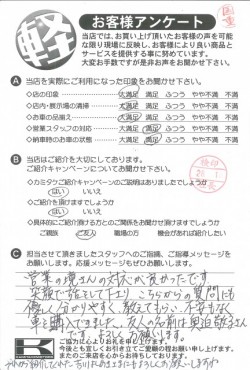 国重
軽
お客様アンケート
当店では、お買い上げ頂いたお客様の声を可能
な限り現場に反映し、お客様により良い商品と
サービスを提供する事に努めています。
大変お手数ですが是非お声をお聞かせ下さい。
A 当店を実際にご利用になった印象をお聞かせ下さい。
◇店の印象 大満足 満足 ふつう やや不満 不満
◇店内・展示場の清掃 大満足 満足 ふつう やや不満 不満
◇お車の品揃え 大満足 満足 ふつう やや不満 不満
◇営業スタッフの対応 大満足 満足 ふつう やや不満 不満
◇納車時のお車の状態 大満足 満足 ふつう やや不満 不満
B 当店はご紹介を大切にしております。
ご紹介キャンペーンについてお聞かせ下さい。
◇カミタケご紹介キャンペーンのご説明はありましたでしょうか
はい いいえ
◇ご紹介を頂けますでしょうか
はい いいえ
◇具体的にご紹介頂ける方とのご関係をお聞かせ頂けますでしょうか
ご親族 ご友人 職場の方 機会があれば紹介したい
C 担当させて頂きましたスタッフへのご指摘、ご指導メッセージを
お願いします。応援メッセージもぜひお願いします。
営業の さんの対応が良かったです
こちらからの質問にも
優しく分かりやすく教えてもらい、不安もなく
車を購入できました。友人の名前は
です よろしくお願いします
ご協力に心よりお礼を申し上げます。
今後とも宜しくお引き立てご愛顧の程お願い申し上げます。
またのご来店を心からお待ちしております。
K